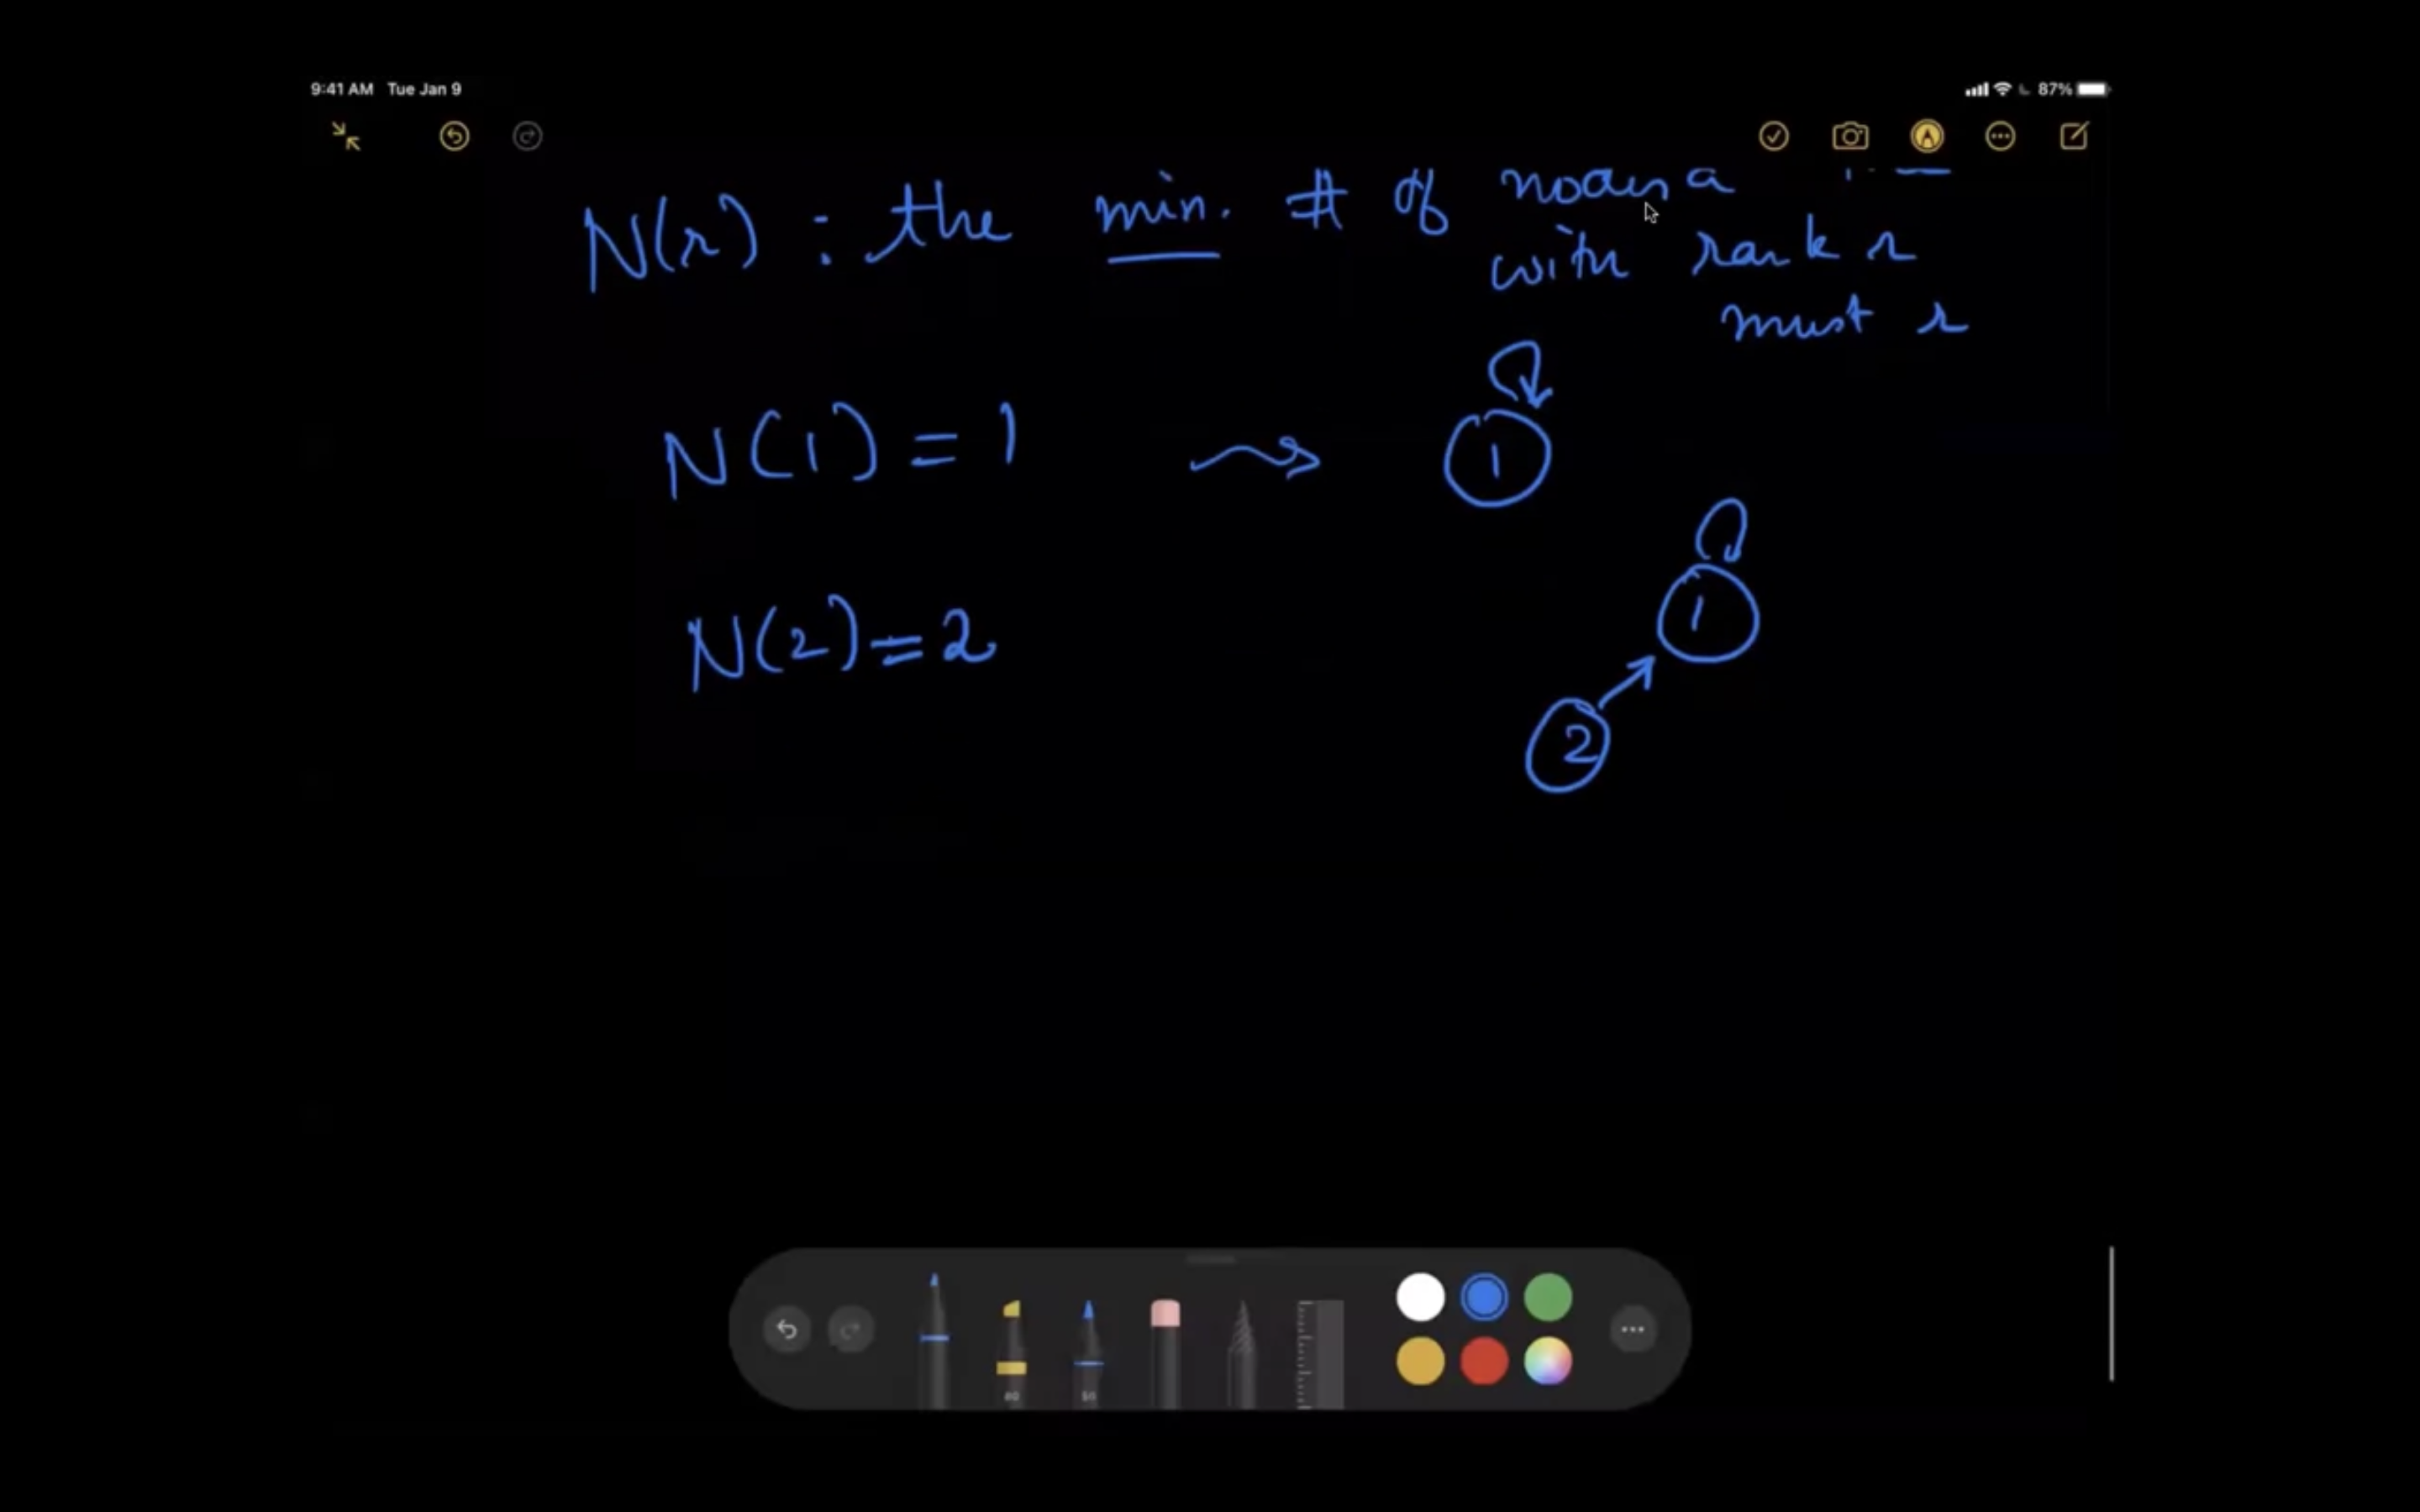 9:41 AM Tue Jan 9 87%
N(r) : the min. # of nodes a
with rank r
must r
N(1) = 1 1
N(2) = 2 1
2
80 50